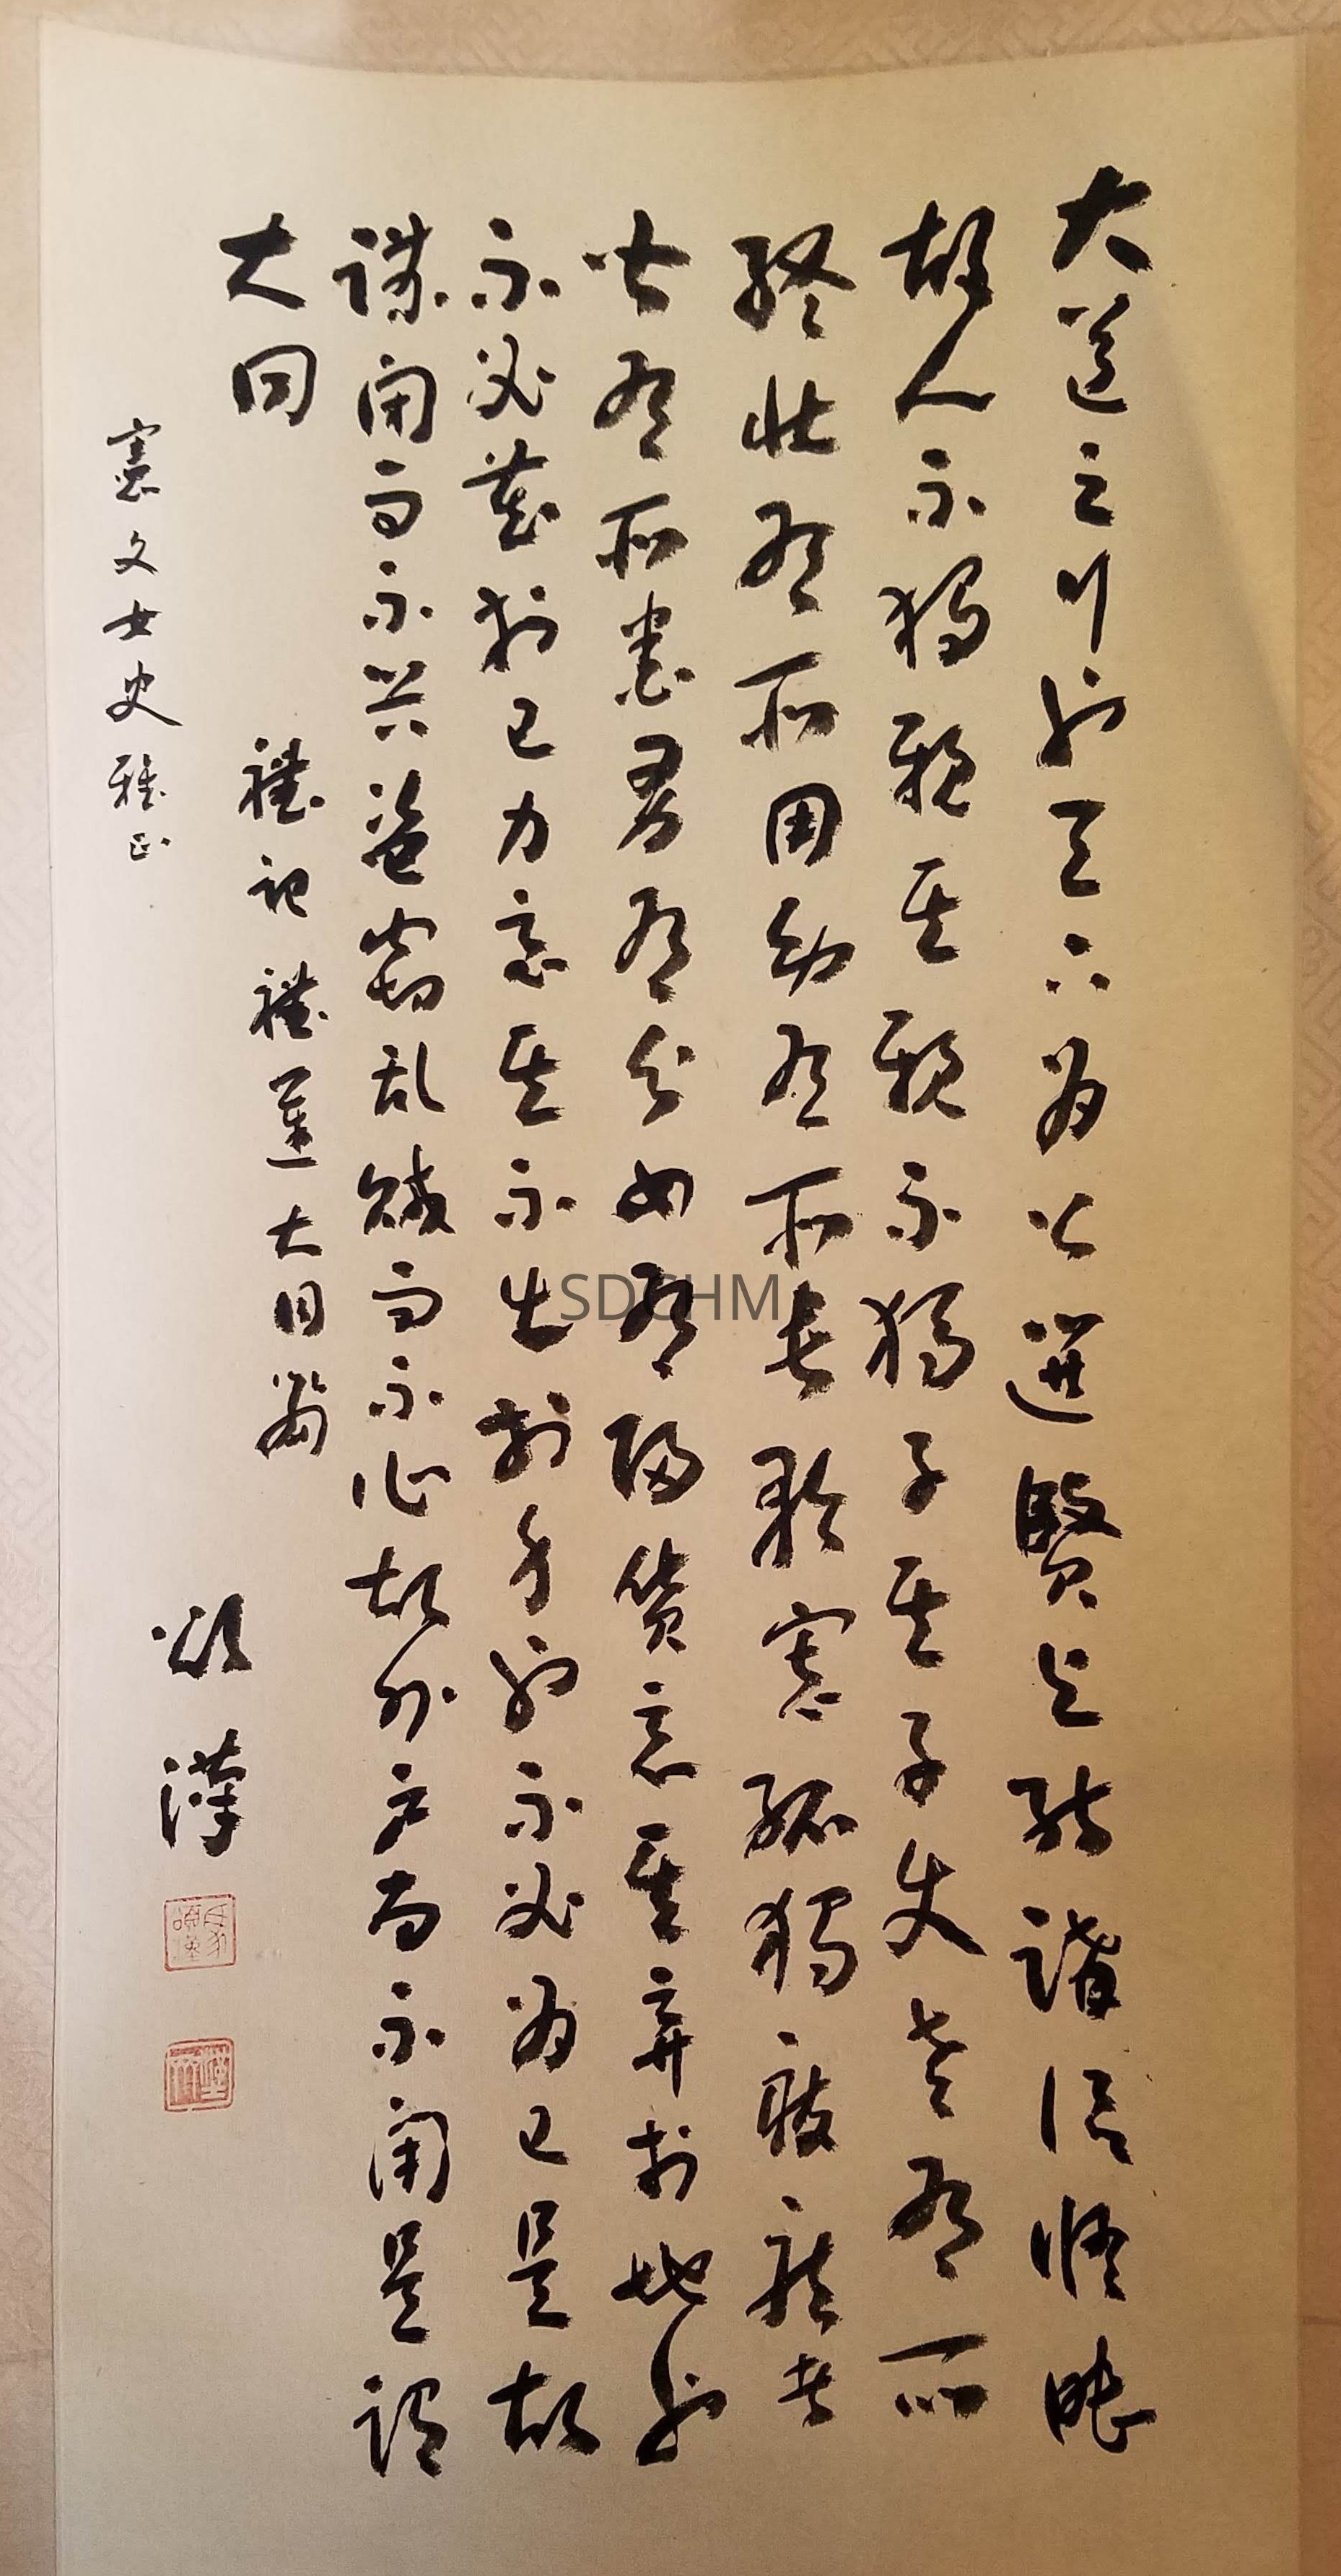 大道之行也天下為公選賢與能講信修睦
故人不獨親其親不獨子其子使老有所
終壯有所用幼有所長矜寡孤獨廢疾者
皆有所養男有分女有歸貨惡其棄於地也
不必藏於己力惡其不出於身也不必為己是故
謀閉而不興盜竊乱賊而不作故外户而不閉是謂
大同
禮記禮運大同篇
憲文女史雅正
頌漢
SDCHM